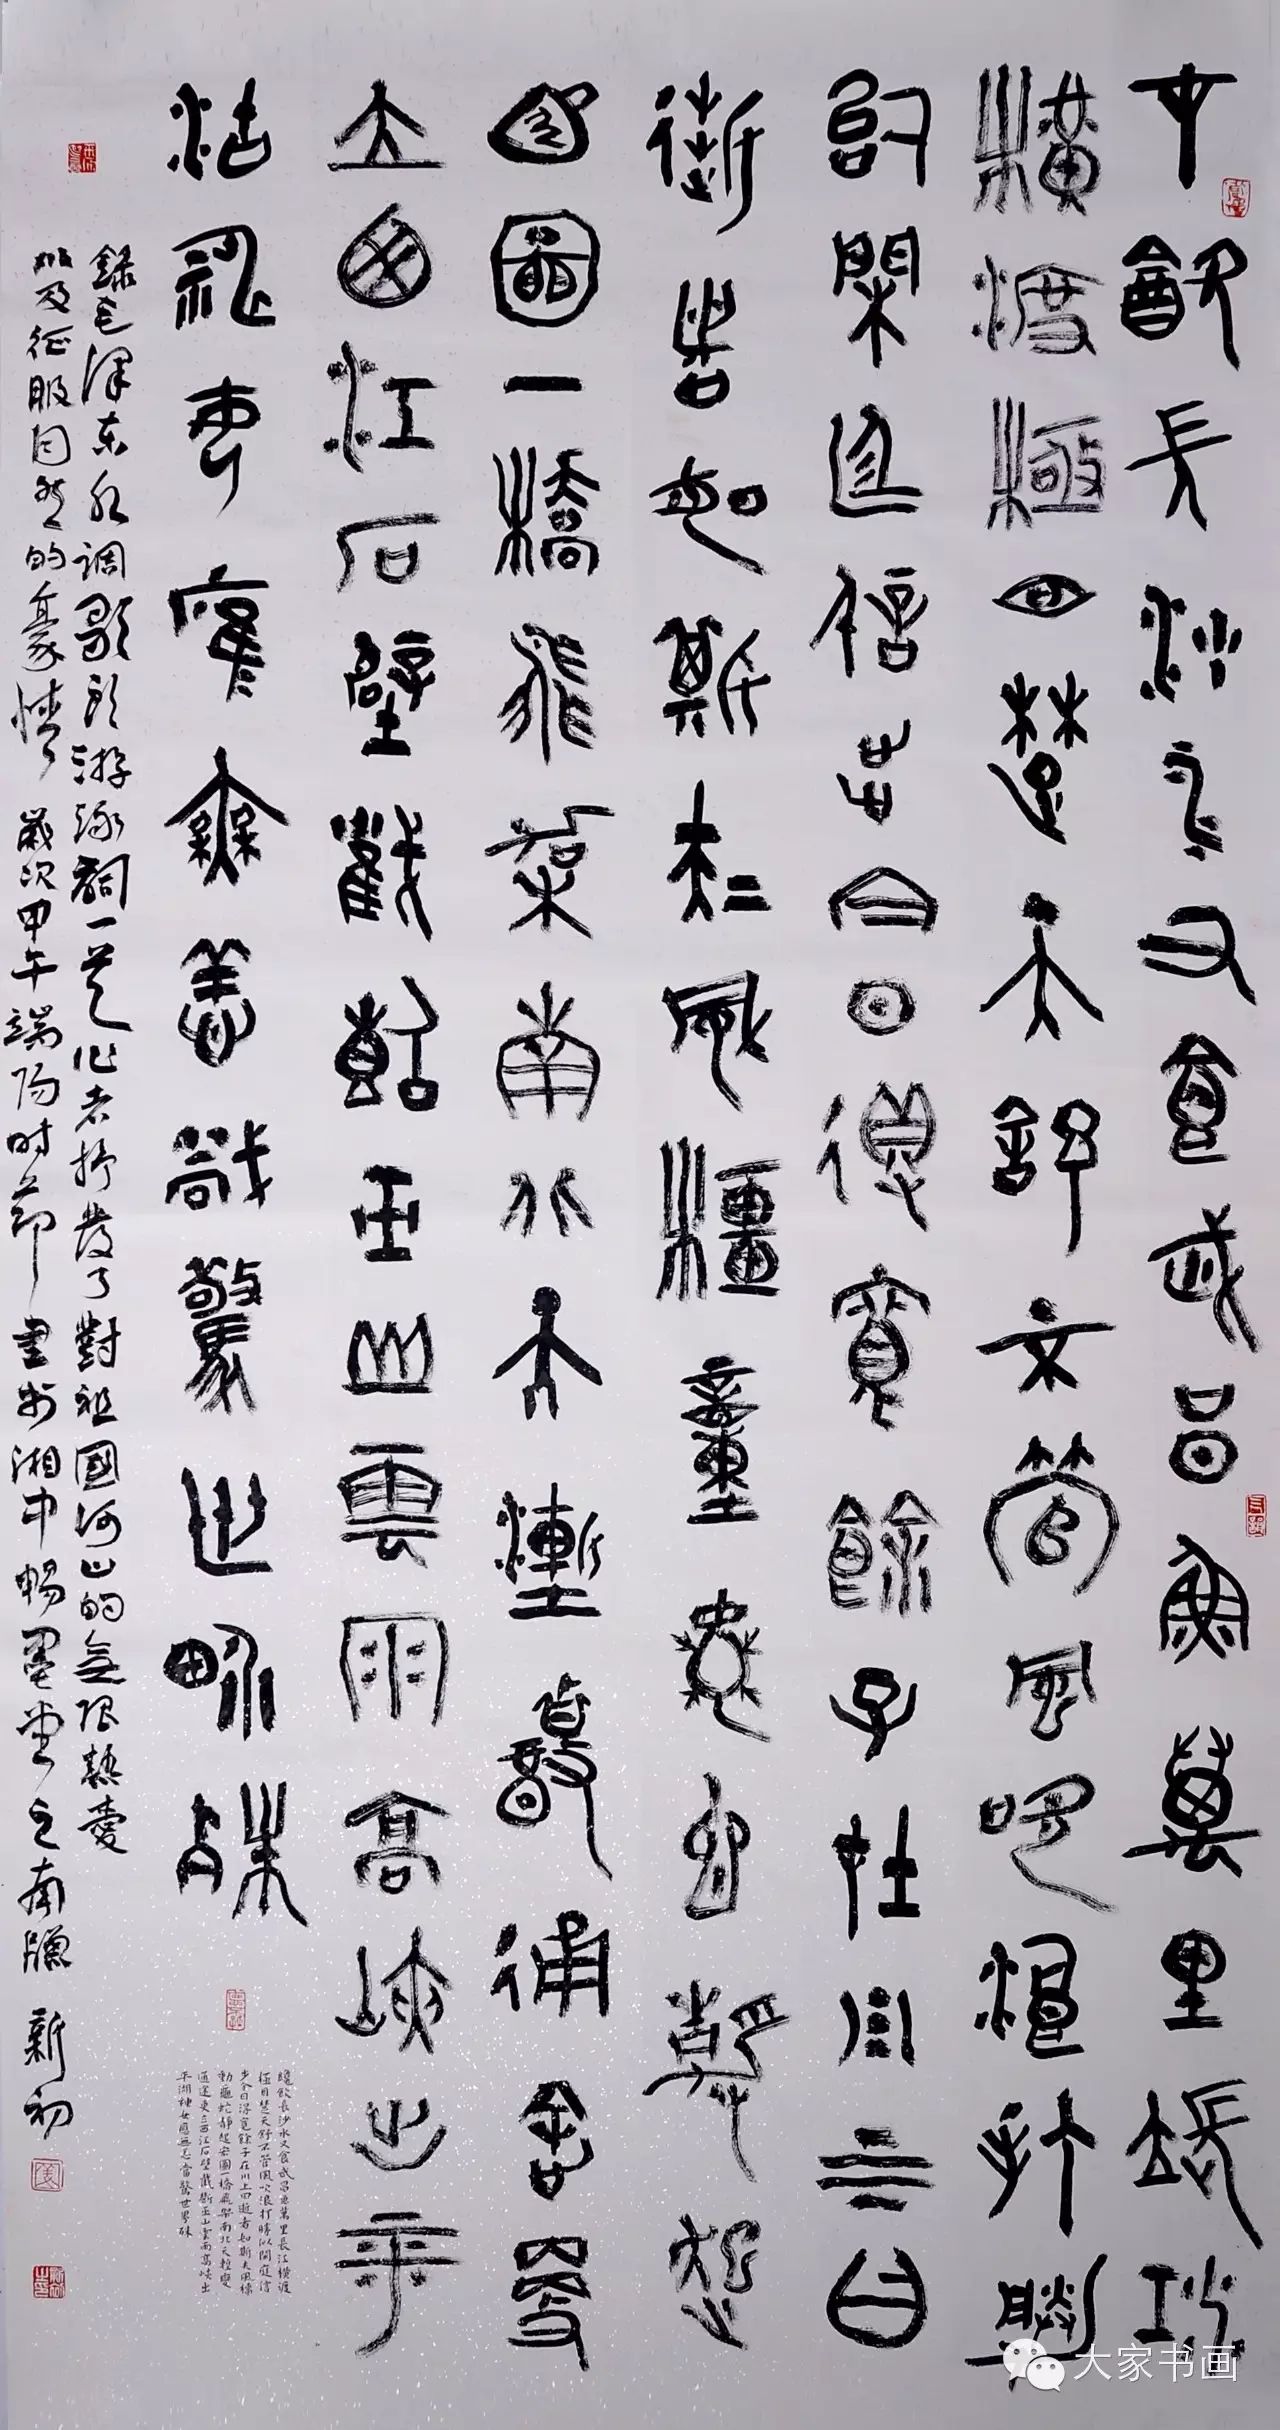 才飲長沙水又食武昌魚萬里長江
橫渡極目楚天舒不管風吹浪打勝
似閑庭信步今日得寬餘子在川上曰
逝者如斯夫風檣動龜蛇靜起
宏圖一橋飛架南北天塹變通途更
立西江石壁截斷巫山雲雨高峽出平
湖神女應無恙當驚世界殊
纔飲長沙水又食武昌魚萬里長江橫渡
極目楚天舒不管風吹浪打勝似閑庭信
步今日得寬餘子在川上曰逝者如斯夫風檣
動龜蛇靜起宏圖一橋飛架南北天塹變
通途更立西江石壁截斷巫山雲雨高峽出
平湖神女應無恙當驚世界殊
錄毛澤東水調歌頭游泳詞一首作者抒發了對祖國河山的無限熱愛
以及征服自然的豪情歲次甲午端陽時節書於湘中暢墨堂之南牖 新初
大家书画